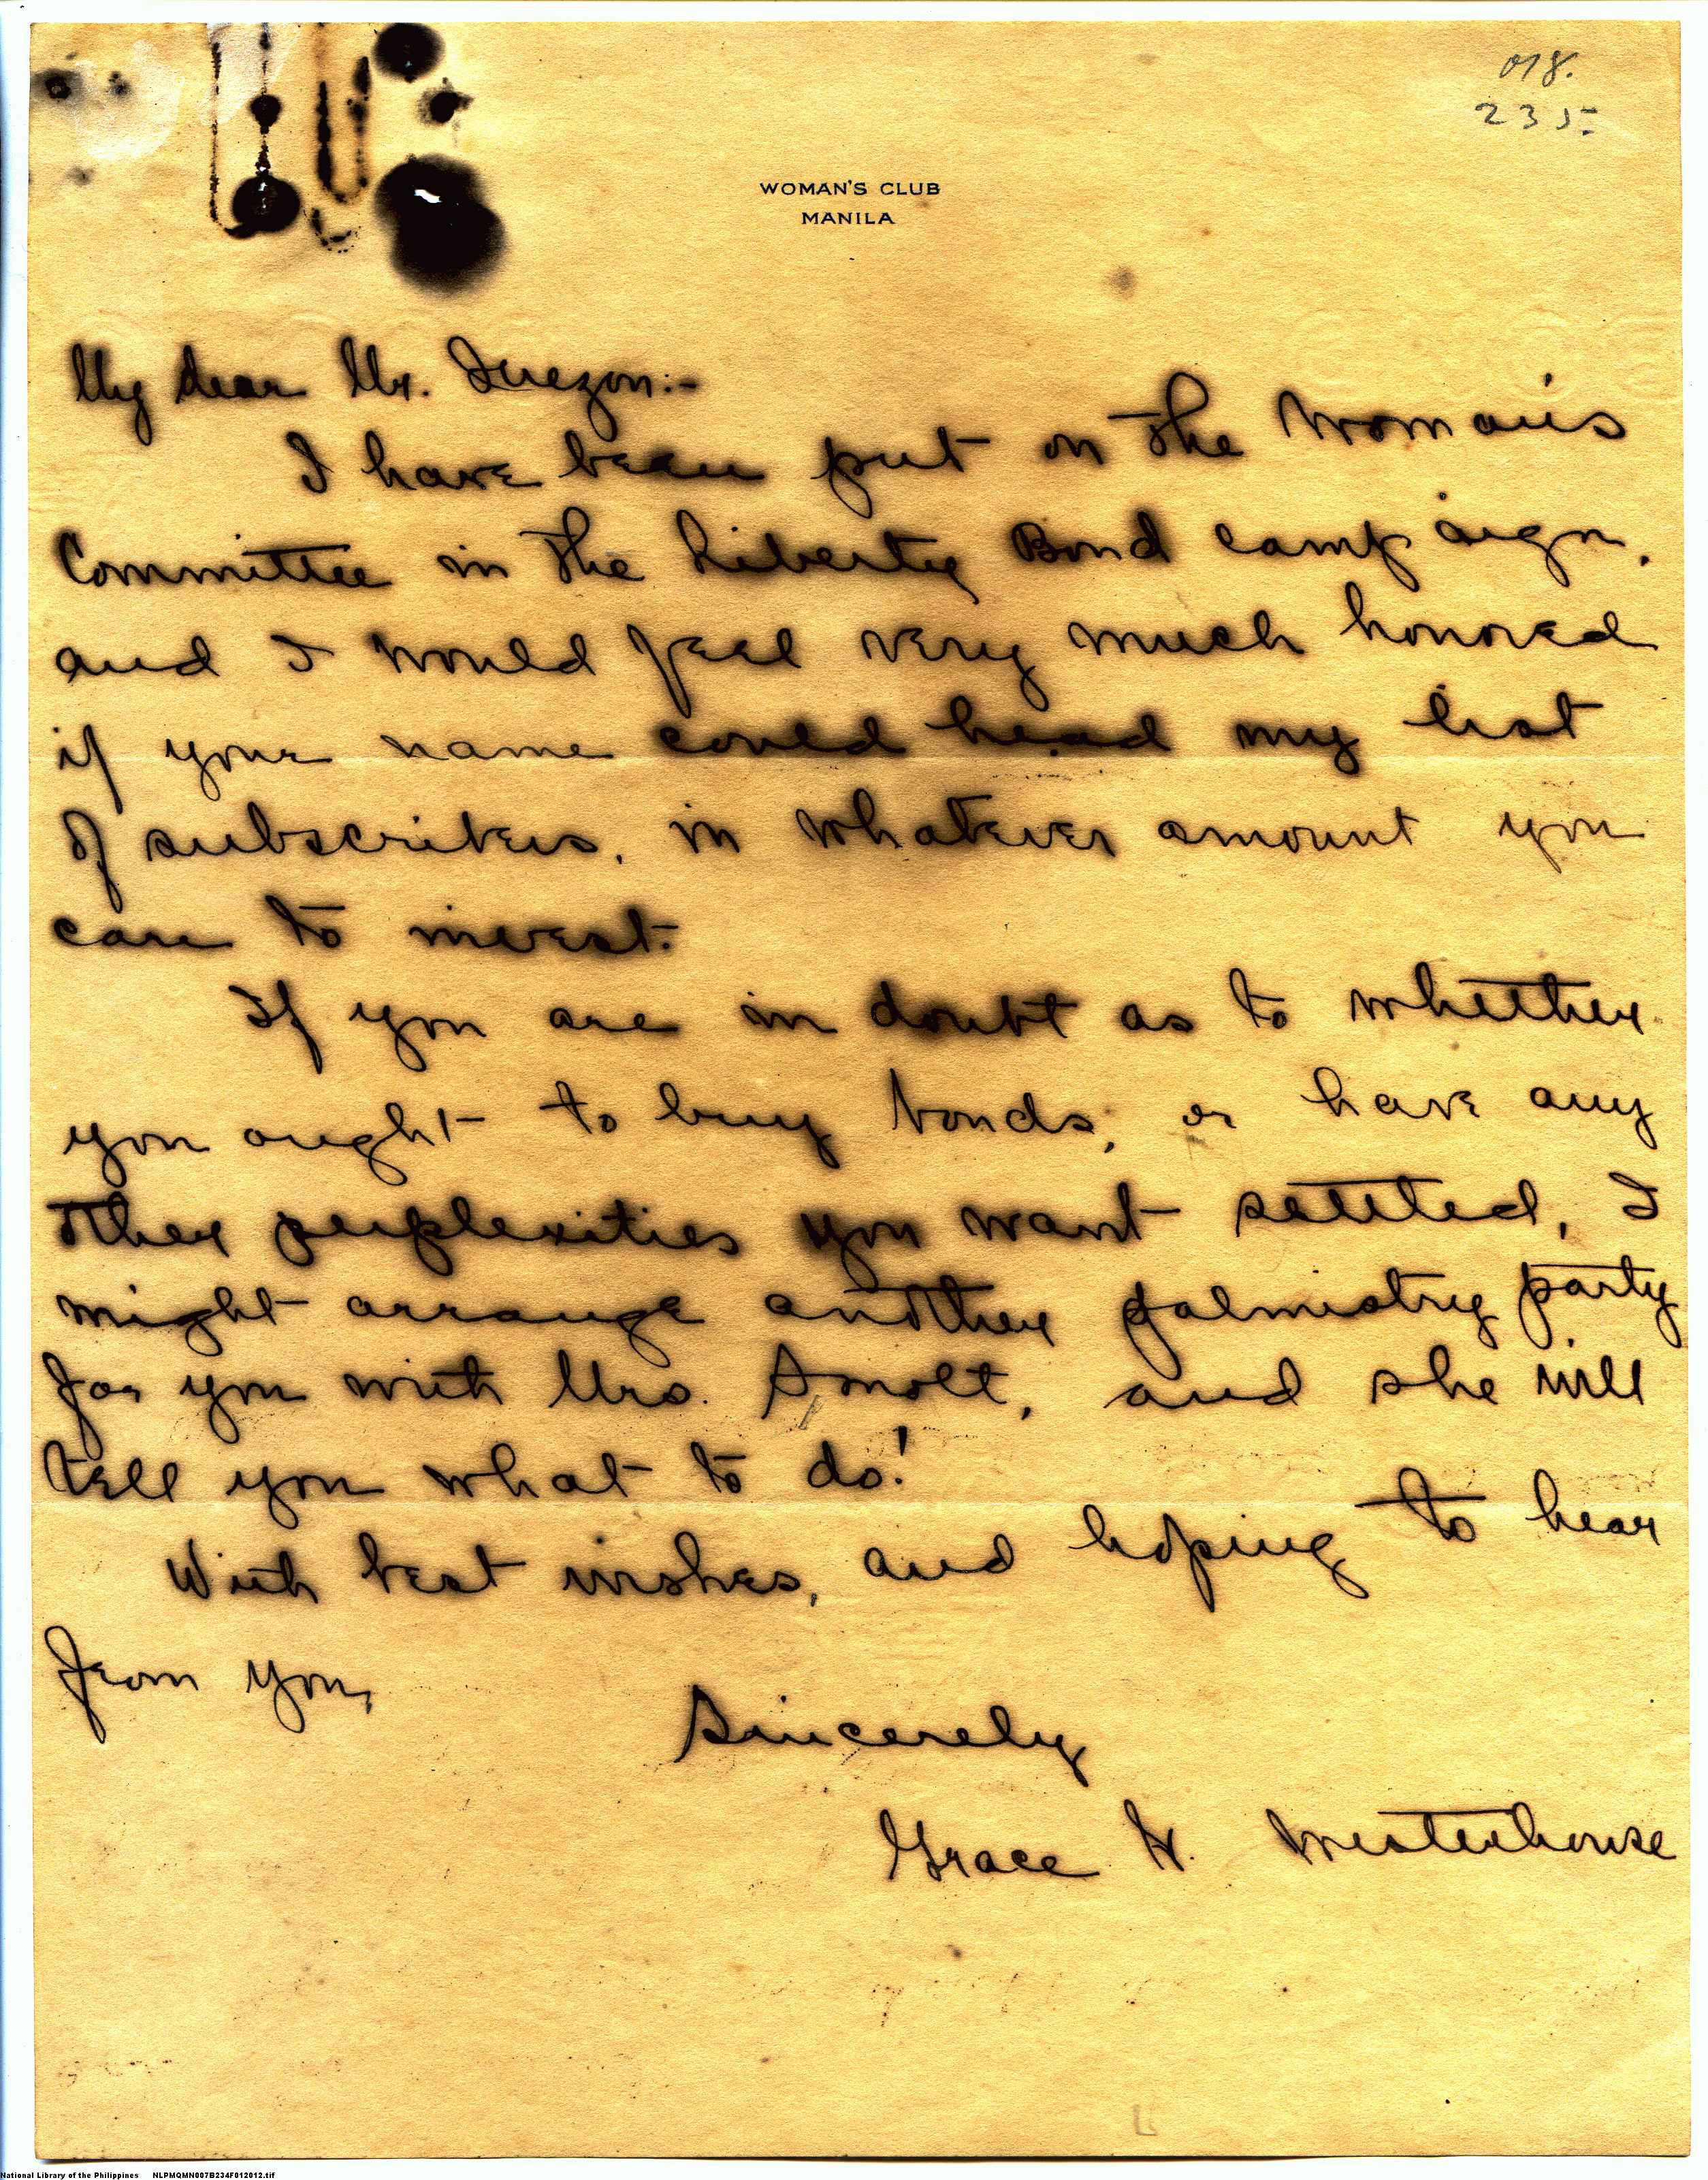 018.
235
WOMAN'S CLUB
MANILA
My dear Mr. Quezon:-
I have been put on the Woman's
Committee in the Liberty Bond campaign,
and I would feel very much honored
if your name could head my list
of subscribers, in whatever amount you
care to invest.
If you are in doubt as to whether
you ought to buy bonds, or have any
other perplexities you want settled, I
might arrange another palmistry party
for you with Mrs. and she will
tell you what to do!
With best wishes, and hoping to hear
from you,
Sincerely
Grace W. Westerhouse
National Library of the Philippines NLPMQMN007B234F012012.tif